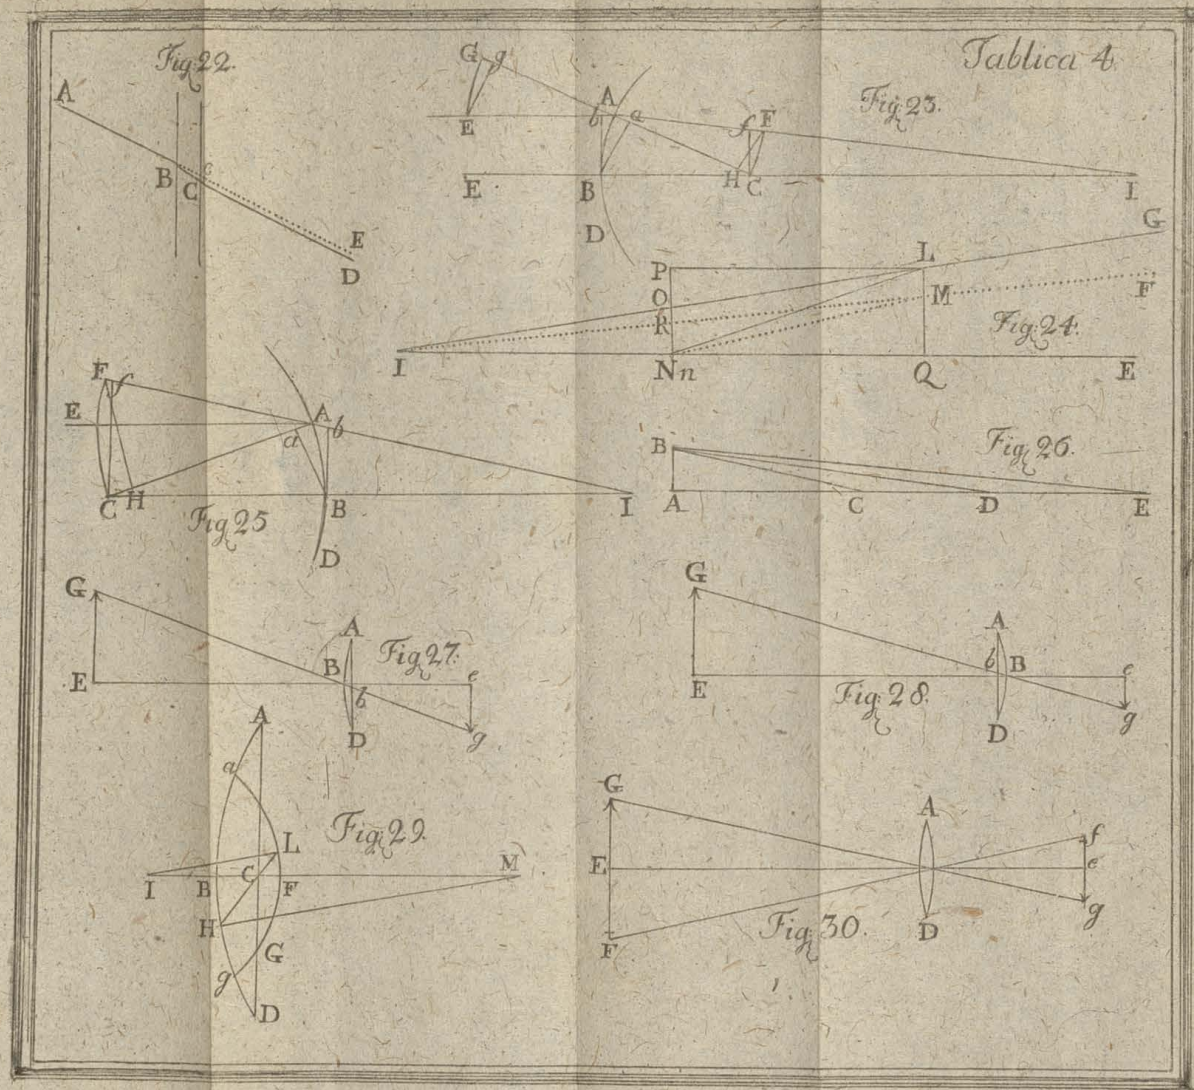 Tablica 4
Fig: 22.
A
B C c
E
D
Fig: 23.
G g
A
E b a f F
E B H C I
D
G
P L
O M F
R
Fig: 24.
I N n Q E
F f
E A b
a
C H B I
Fig: 25
D
B Fig: 26.
A C D E
G
A
B Fig: 27.
E b e
D g
G
A
b B e
E Fig: 28.
D g
A
a
Fig: 29.
L
I B C F M
H
G
g
D
G
A
f
E e
g
F Fig: 30. D